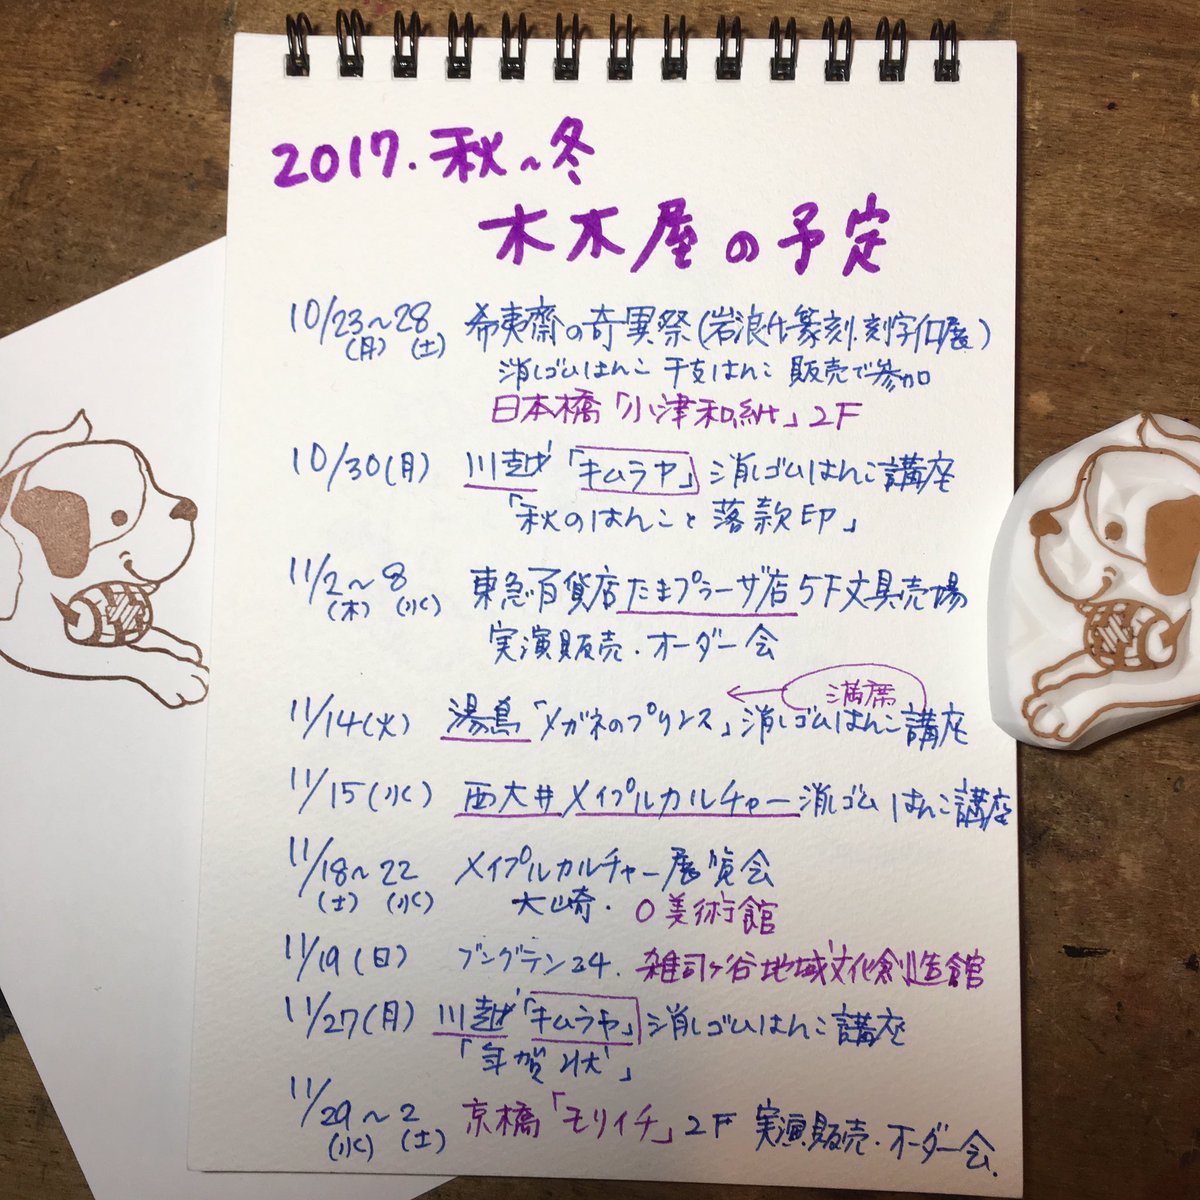 2017.秋〜冬
木木屋の予定
10/23〜28 希夷齋の奇異祭(岩浪仕篆刻.刻字個展)
(月) (土)
消しゴムはんこ 干支はんこ 販売で参加
日本橋「小津和紙」2F
10/30(月) 川越「キムラヤ」消しゴムはんこ講座
「秋のはんこと落款印」
11/2〜8 東急百貨店たまプラーザ店5F文具売場
(木) (水)
実演販売・オーダー会
満席
11/14(火) 湯島「メガネのプリンス」消しゴムはんこ講座
11/15(水) 西大井メイプルカルチャー消しゴムはんこ講座
11/18〜22 メイプルカルチャー展覧会
(土) (水) 大崎・O美術館
11/19(日) ブングテン24.雑司ヶ谷地域文化創造館
11/27(月) 川越「キムラヤ」消しゴムはんこ講座
「年賀状」
11/29〜2 京橋「モリイチ」2F 実演販売・オーダー会.
(水) (土)